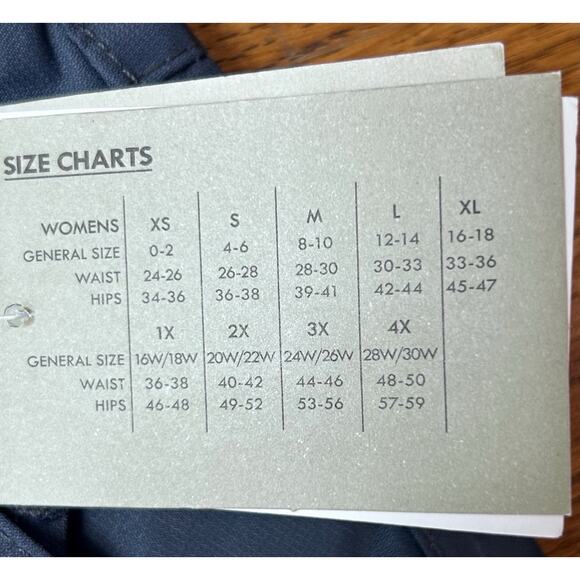 SIZE CHARTS
WOMENS XS S M L XL
GENERAL SIZE 0-2 4-6 8-10 12-14 16-18
WAIST 24-26 26-28 28-30 30-33 33-36
HIPS 34-36 36-38 39-41 42-44 45-47
1X 2X 3X 4X
GENERAL SIZE 16W/18W 20W/22W 24W/26W 28W/30W
WAIST 36-38 40-42 44-46 48-50
HIPS 46-48 49-52 53-56 57-59